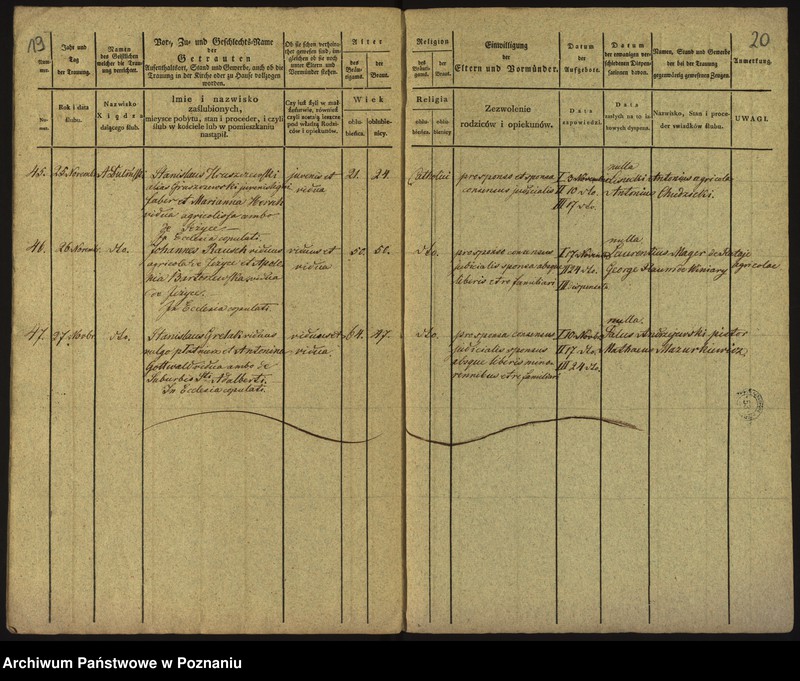 19
20
Num-
mer.
Jahr und
Tag
der Trauung.
Namen
des Geistlichen
welcher die Trau-
ung verrichtet.
Vor-, Zu- und Geschlechts-Name
der
Getrauten
Aufenthaltsort, Stand und Gewerbe, auch ob die
Trauung in der Kirche oder zu Hause vollzogen
worden.
Ob sie schon verheira-
thet gewesen sind; im-
gleichen ob sie noch
unter Eltern und
Vormünder stehen.
Alter
des
Bräu-
tigams.
der
Braut.
Religion
des
Bräuti-
gams.
der
Braut.
Einwilligung
der
Eltern und Vormünder.
Datum
der
Aufgebote.
Datum
der etwanigen ver-
schiedenen Dispen-
sationen davon.
Namen, Stand und Gewerbe
der bei der Trauung
gegenwärtig gewesenen Zeugen.
Anmerkung.
Nu-
mer.
Rok i data
ślubu.
Nazwisko
Xiędza
dającego ślub.
Imie i nazwisko
zaślubionych,
mieysce pobytu, stan i proceder, i czyli
ślub w kościele lub w pomieszkaniu
nastąpił.
Czy iuż żyli w mał-
żeństwie, również
czyli zostają ieszcze
pod władzą Rodzi-
ców i opiekunów.
Wiek
oblu-
bieńca.
oblubie-
nicy.
Religia
oblu-
bieńca.
oblu-
bienicy
Zezwolenie
rodziców i opiekunów.
Data
zapowiedzi.
Data
zaszłych na to is-
totnych dyspens.
Nazwisko, Stan i proce-
der świadków ślubu.
UWAGI.
45.
25 Novembr
Stanislaus
alias Gruszczewski juvenis ligni
faber et Marianna
vidua agricolissa ambo
de Jezyce
In Ecclesia copulati.
juvenis et
vidua
21.
24.
Catholici
pre sponso et sponsa
consensus judicialis
I 3 Novembr
II 10 dto.
III 17 dto.
nulla
Antonius agricola
Antonius Chudzicki.
46.
26 Novembr
dto.
Johannes Rausch viduus
agricola de Jezyce et Apolo-
nia Bartoszewska vidua
de Jezyce.
In Ecclesia copulati.
viduus et
vidua
50.
50.
dto.
pre sponso consensus
judicialis sponsa absque
liberis et re familiari
I 17 Novembr
II 24 dto.
III dispensati
nulla
Laurentius Mager de Rataje
George de Winiary agricolae
47.
27 Novbr
dto.
Stanislaus Grelak viduus
et Antonina
Gottwald vidua ambo de
Suburbio Sti. Adalberti.
In Ecclesia copulati.
viduus et
vidua
64.
47.
dto.
pre sponsa consensus
judicialis sponsus
absque liberis mino-
rennibus et re familiari
I 10 Novbr
II 17 dto.
III 24 dto.
nulla
Andrzejewski pictor
Mathaeus Mazurkiewicz
Archiwum Państwowe w Poznaniu